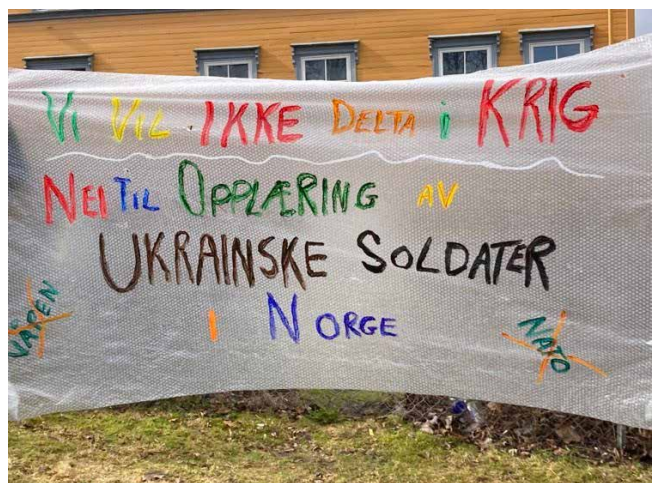 Vi Vil IKKE DELTA i KRIG
NEI TIL OPPLÆRING AV
UKRAINSKE SOLDATER
I NORGE
VÅPEN
NATO